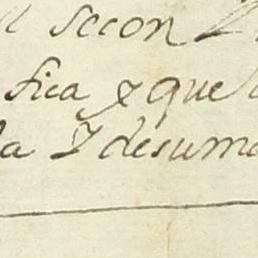 secon
fica y que
la y desuma